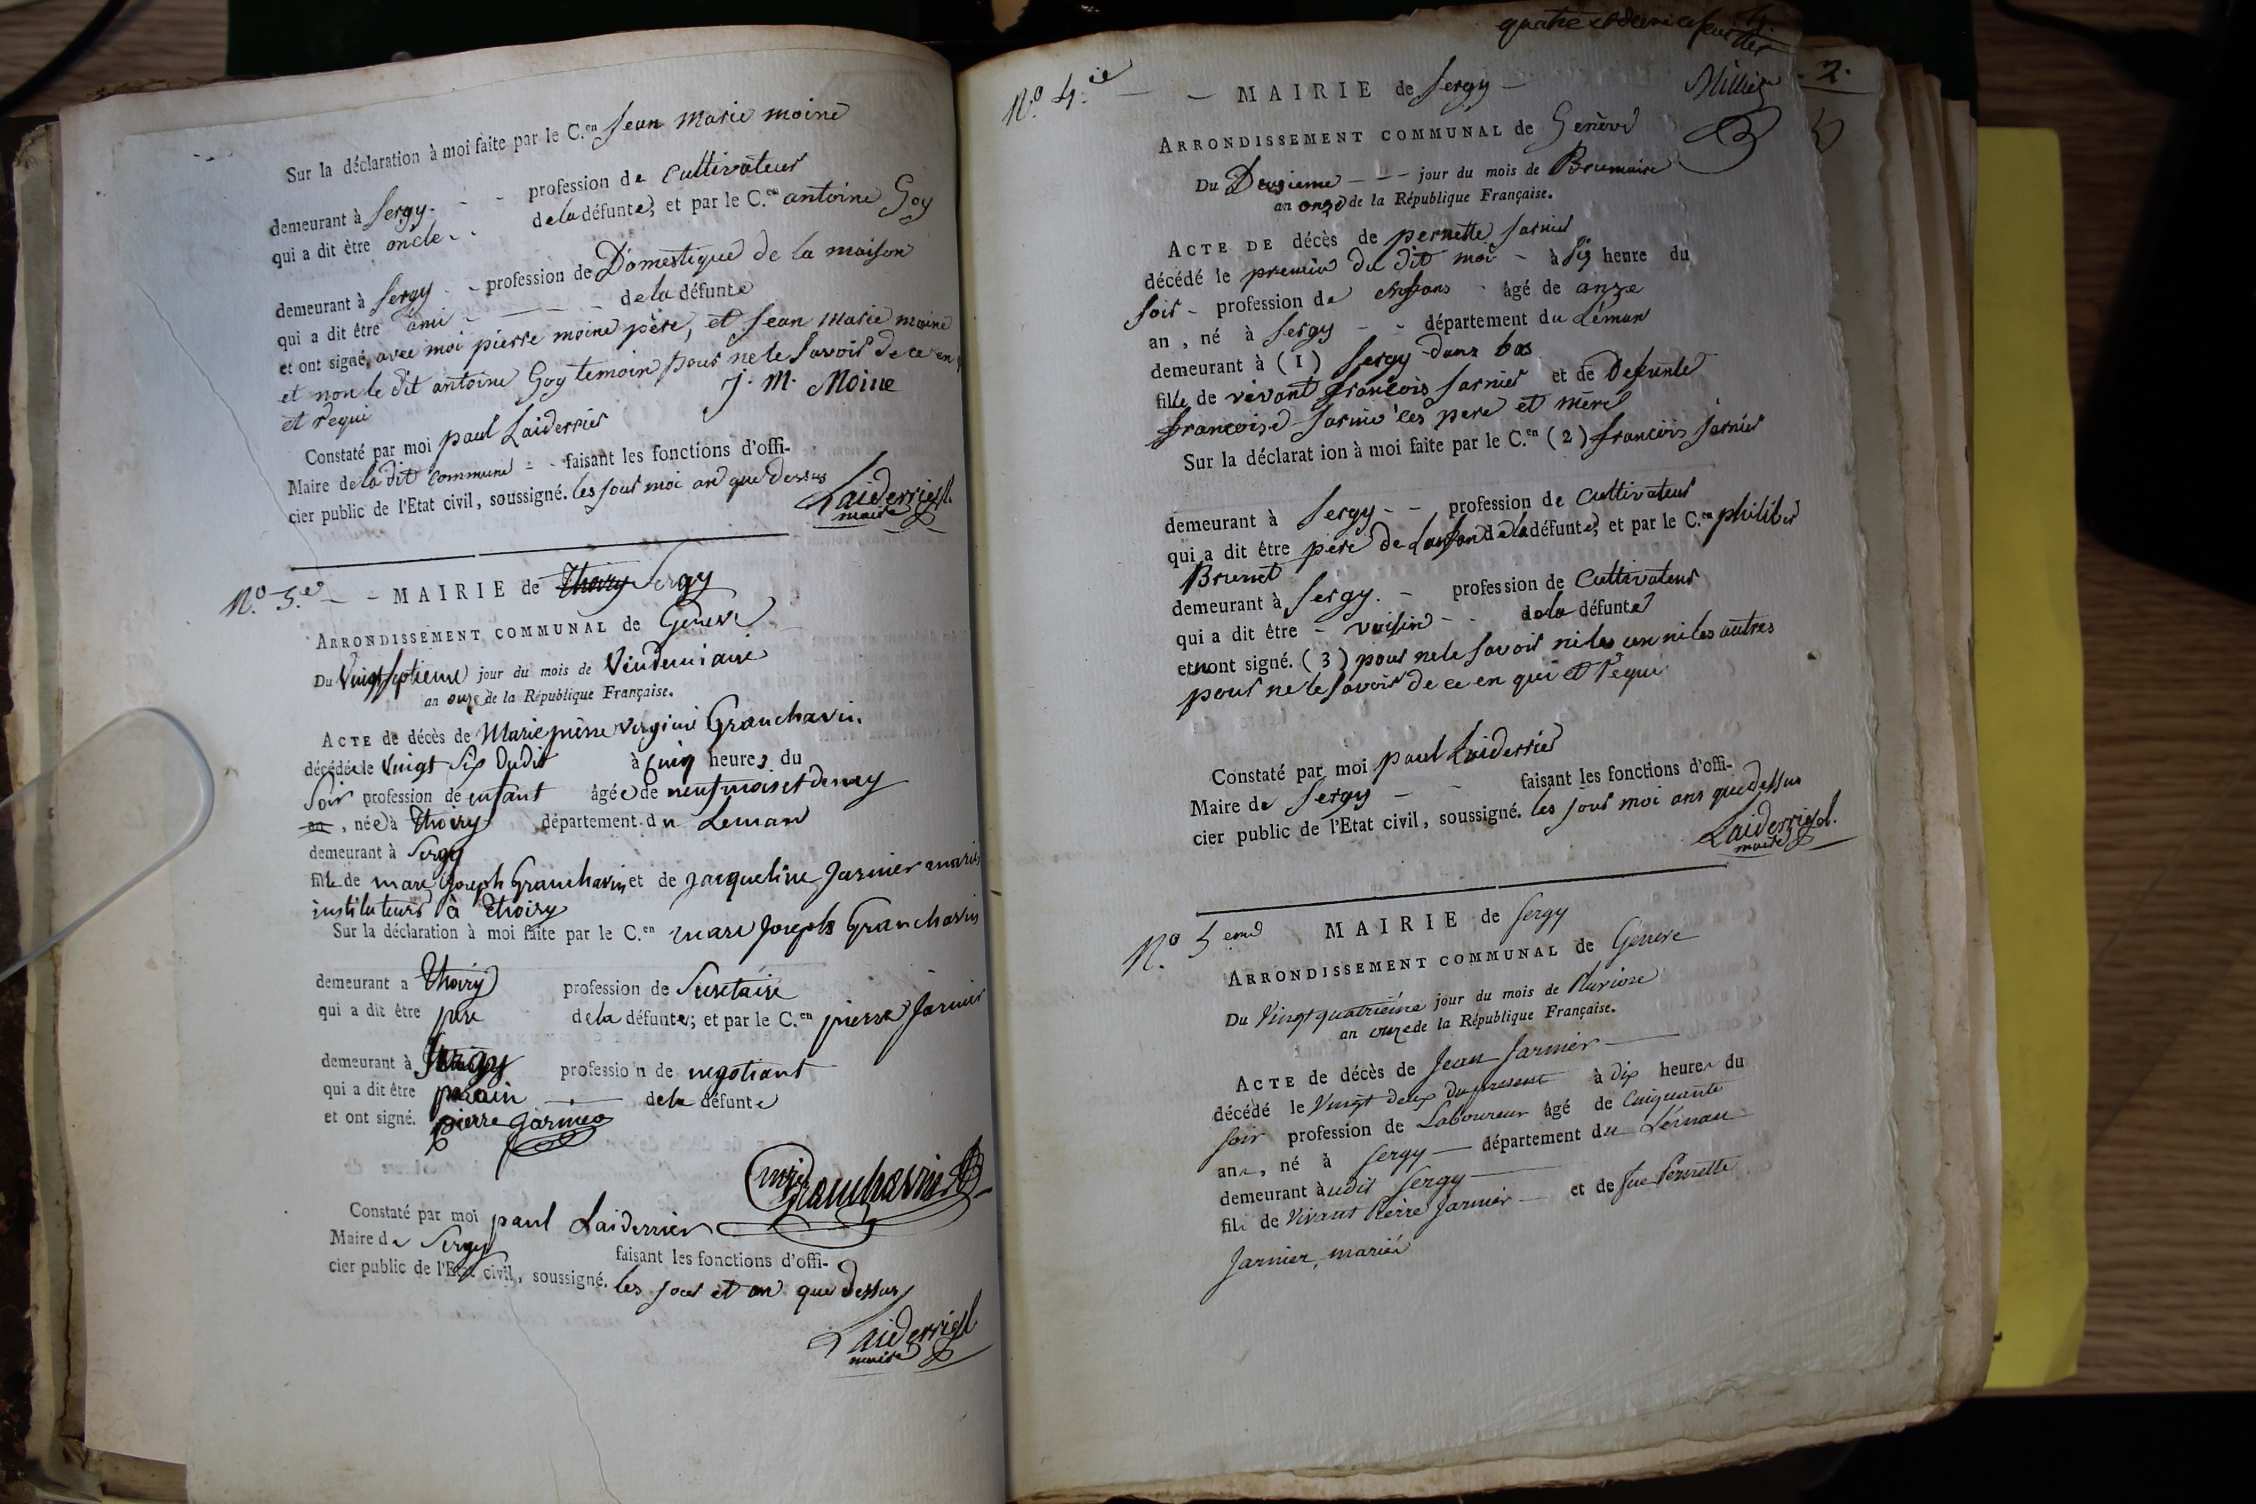 Sur la déclaration à moi faite par le C.en Jean Marie moine
demeurant à Sergy - - profession de Cultivateur
qui a dit être oncle - - de la défunte, et par le C.en antoine Goy
demeurant à Sergy - - profession de Domestique de la maison
qui a dit être ami - - de la défunte
et ont signé, avec moi pierre moine père, et Jean Marie moine
et non le dit antoine Goy temoin pour ne le savoir de ce en
et requi J. M. Moine
Constaté par moi paul Laiderrier
Maire de la dit Commune - - faisant les fonctions d'offi-
cier public de l'Etat civil, soussigné. les jour moi an que dessus
Laiderrier
maire
N.o 3.e - - MAIRIE de Thoiry Sergy
ARRONDISSEMENT COMMUNAL de Geneve
Du Vingt septieme jour du mois de Vendemiaire
an onze de la République Française.
ACTE de décès de Marie pierre virginie Granchavin.
décédée le Vingt Six dudit à Cinq heures du
Soir profession de enfant âgée de neuf mois et demy
an, née à Thoiry département du Leman
demeurant à Sergy
fille de marc Joseph Granchavin et de Jacqueline Jarnier mariés
instituteurs à Thoiry
Sur la déclaration à moi faite par le C.en marc Joseph Granchavin
demeurant a Thoiry profession de Secretaire
qui a dit être pere de la défunte; et par le C.en pierre Jarnier
demeurant à Sergy profession de negotiant
qui a dit être parain - de la défunte
et ont signé. pierre Jarnier
Granchavin
Constaté par moi paul Laiderrier
Maire de Sergy faisant les fonctions d'offi-
cier public de l'Etat civil, soussigné. les jour et an que dessus
Laiderrier
maire
quatre
Milliet
2.
N.o 4.ie - - MAIRIE de Sergy -
ARRONDISSEMENT COMMUNAL de Genève
Du Deuzieme - - - jour du mois de Brumaire
an onze de la République Française.
ACTE DE décès de pernette Jarnier
décédé le premier du dit moi - à six heure du
soir - profession de âgé de onze
an, né à Sergy - - département du Léman
demeurant à (1) Sergy dans bas
fille de vivant françois Jarnier et de Defunte
françoise Jarnier ces pere et mère
Sur la déclarat ion à moi faite par le C.en (2) françois Jarnier
demeurant à Sergy - - profession de Cultivateur
qui a dit être père de Lanfan de la défunte, et par le C.en philiber
Brunet
demeurant à Sergy. - profession de Cultivateur
qui a dit être - voisin - - de la défunte
et nont signé. (3) pour ne le savoir ni les un ni les autres
pour ne le savoir de ce en qui et requi
Constaté par moi paul Laiderrier
Maire de Sergy - - faisant les fonctions d'offi-
cier public de l'Etat civil, soussigné. les jour moi ans que dessus
Laiderrier
maire
N.o 5 eme MAIRIE de Sergy
ARRONDISSEMENT COMMUNAL de Geneve
Du Vingt quatrième jour du mois de Pluviose
an onze de la République Française.
ACTE de décès de Jean Jarnier -
décédé le Vingt deux du present à dix heures du
soir profession de Laboureur âgé de Cinquante
ans, né à Sergy - département du Léman
demeurant audit Sergy -
fils de Vivant Pierre Jarnier - et de fue Pernette
Jarnier, mariés